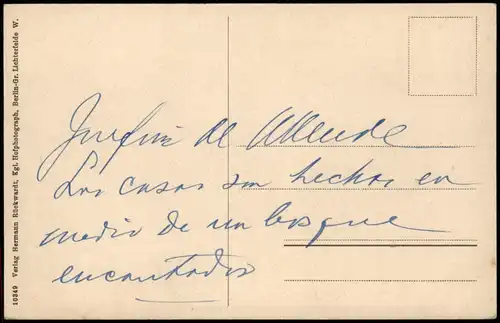 Josefina de Allende
Las casas son hechas en
medio de un bosque
encantados
10349 Verlag Hermann Rückwardt, Kgl. Hofphotograph, Berlin-Gr. Lichterfelde W.